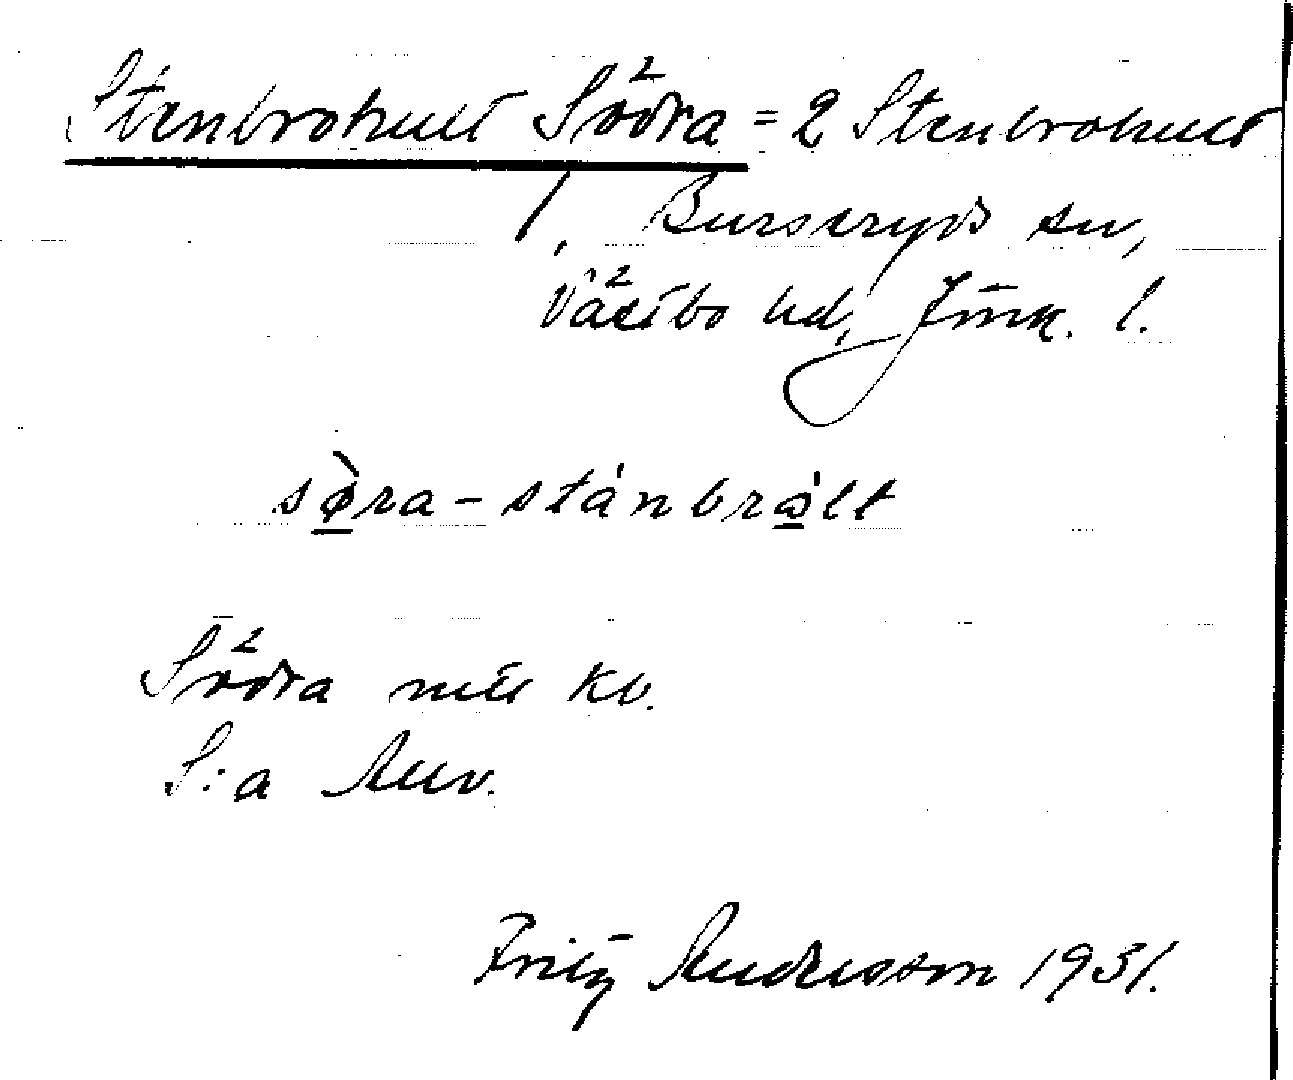 Stenbrohult Södra = 2 Stenbrohult
1, Burseryds sn,
Västbo hd, Jönk. l.
sø̀ra - stánbrǻlt
Södra
S:a
Fritz Andersson 1931.